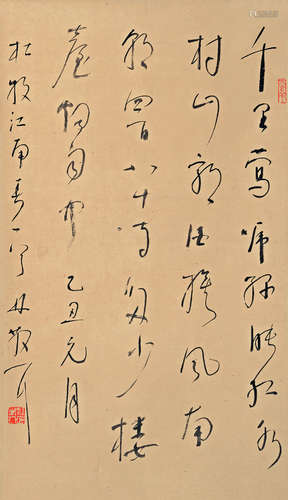 千里鶯啼綠映紅水
村山郭酒旗風南
朝四百八十寺多少樓
臺烟雨中 乙丑元月
杜牧江南春一首 林散耳